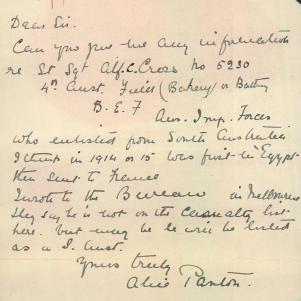 Dear Sir.
Can you give me any information
re St Sgt Alf. C. Cross no 5230
4th Aust. Field (Bakery) or Batty
B. E. F
Aus. Imp. Forces
who enlisted from South Australia
I think in 1914 or 15 was first in Egypt
then sent to France
I wrote to the Bureau in Melbourne
they say he is not on the Casualty list
here. but may be he will be listed
as a I. Aust.
Yours truly
Alice Panton.